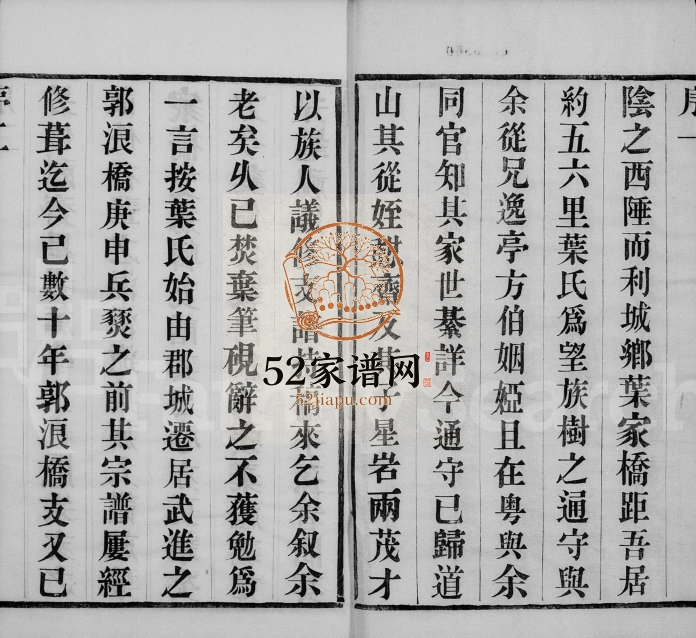 序一
陰之西陲而利城鄉葉家橋距吾居
約五六里葉氏爲望族樹之通守與
余從兄逸亭方伯姻婭且在粤與余
同官知其家世綦詳今通守已歸道
山其從姪齋及其子星岩兩茂才
以族人議修支譜持稿來乞余叙余
老矣久已焚棄筆硯辭之不獲勉爲
一言按葉氏始由郡城遷居武進之
郭浪橋庚申兵燹之前其宗譜屢經
修葺迄今已數十年郭浪橋支又已
52家谱网
52jiapu.com